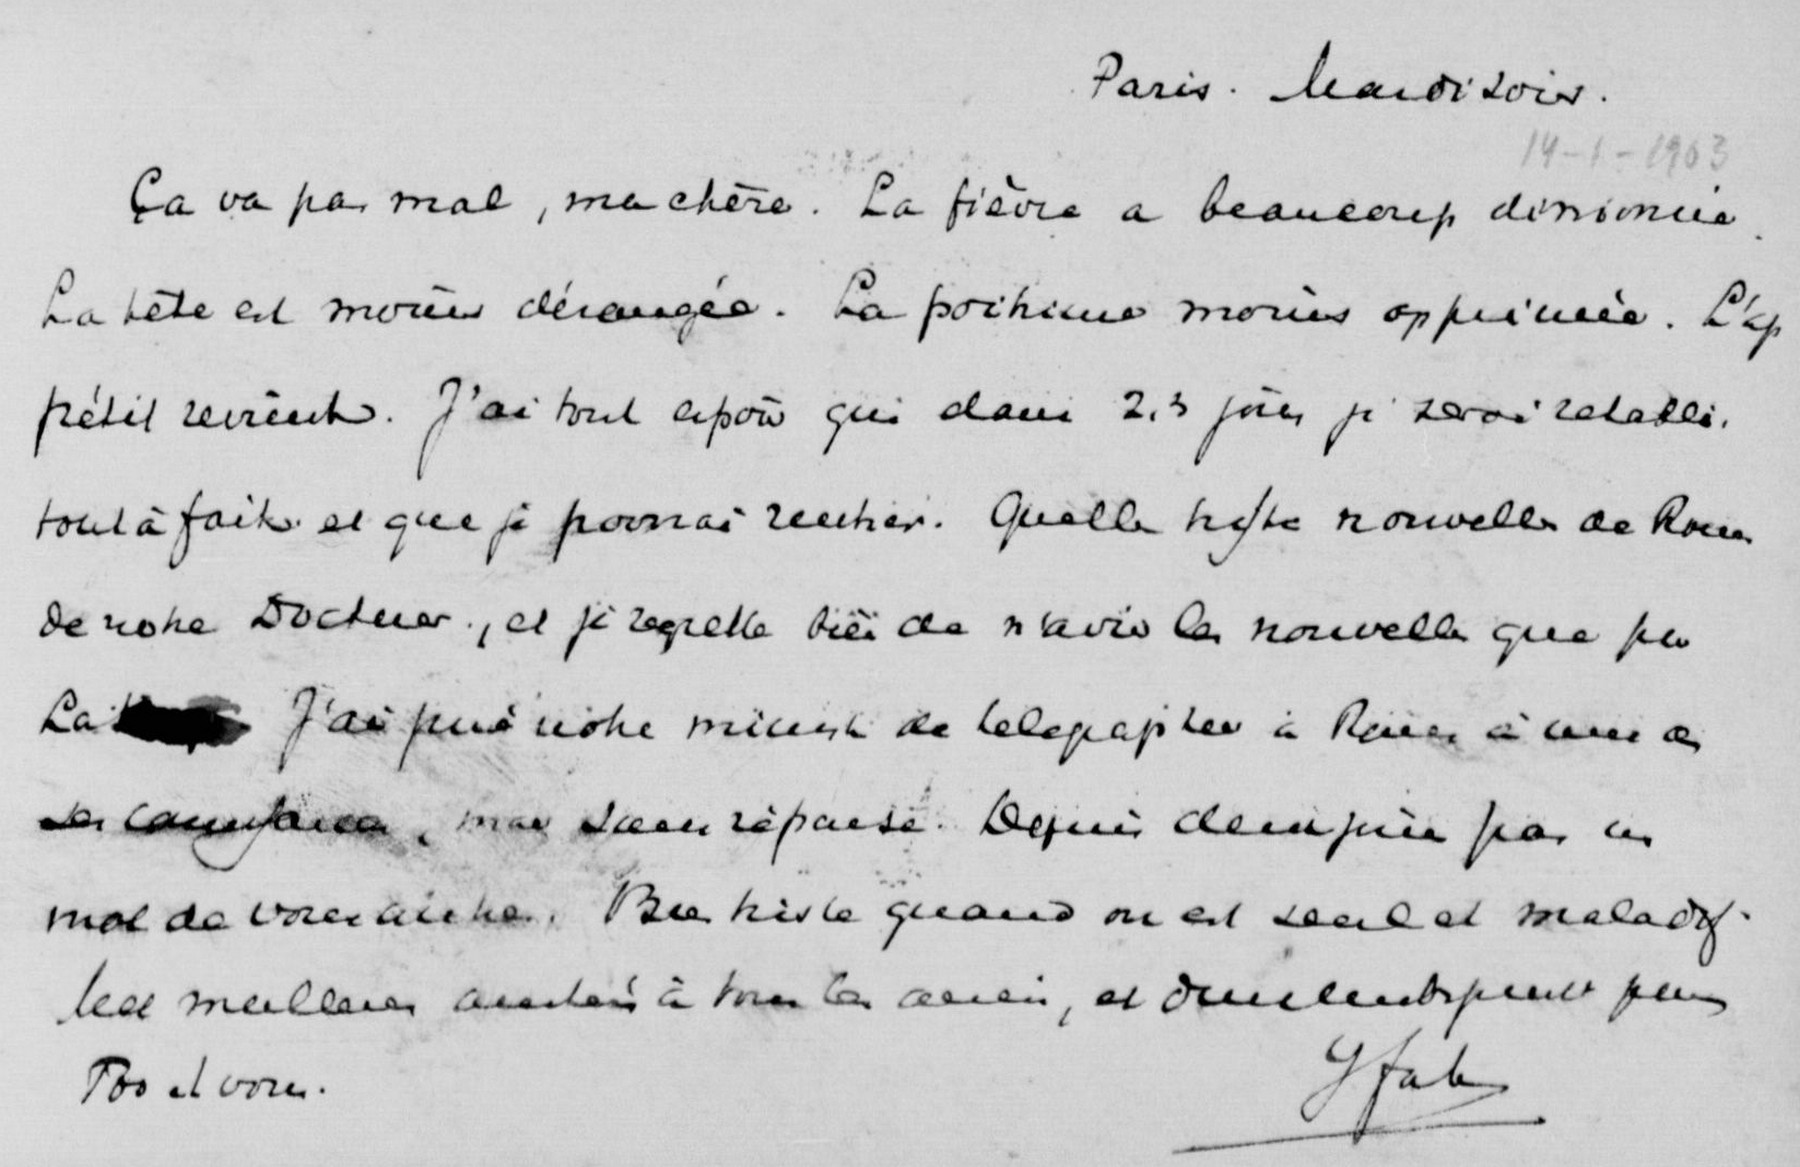 Paris. Mardi soir.
14-1-1903
Ça va pas mal, ma chère. La fièvre a beaucoup diminuée.
La tête est moins dérangée. La poitrine moins opprimée. L'ap
pétit revient. J'ai tout espoir que dans 2,3 jours je serai retabli
tout à fait et que je pourrai rentrer. Quelle triste nouvelle de Rouen
de notre Docteur, et je regrette bien de n'avoir les nouvelles que par
La J'ai prié notre de telegraphier à Rouen à une de
ses mais sans réponse. Depuis pas un
mot de vous autres. Bien triste quand on est seul et malade.
Mes meilleures amitiés à tous les amis, et pour
Théo et vous.